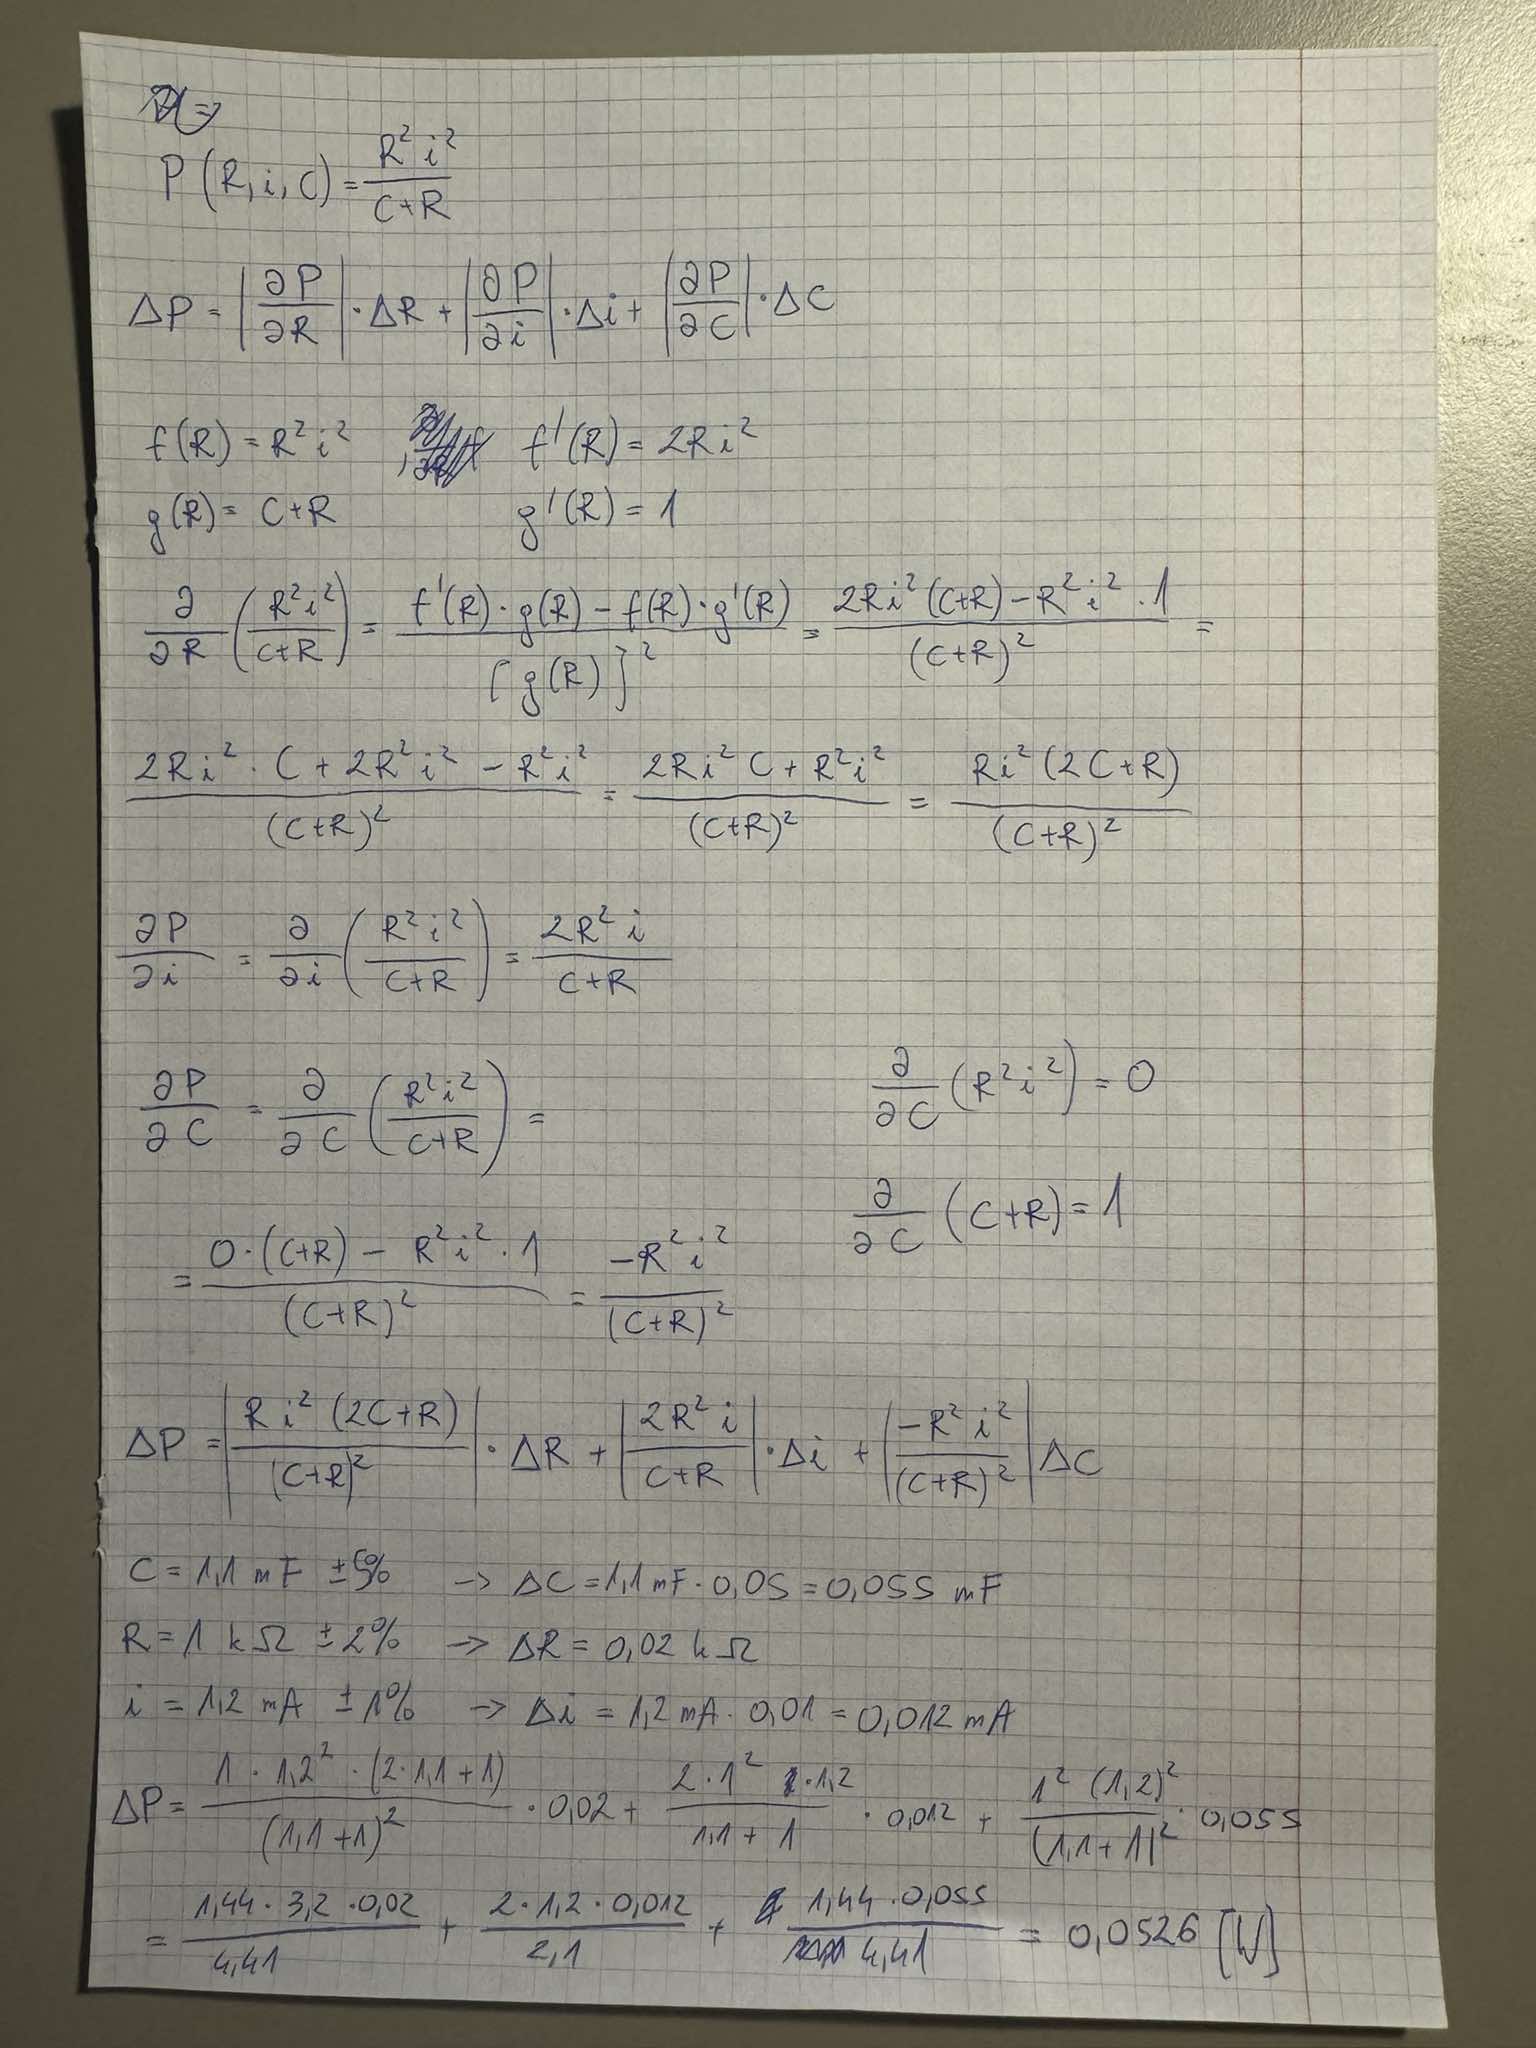 P(R, i, C) = R² i² / C+R
ΔP = |∂P/∂R| · ΔR + |∂P/∂i| · Δi + |∂P/∂C| · ΔC
f(R) = R² i² f'(R) = 2R i²
g(R) = C+R g'(R) = 1
∂/∂R (R² i² / C+R) = f'(R) · g(R) – f(R) · g'(R) / [g(R)]² = 2R i² (C+R) – R² i² · 1 / (C+R)² =
2R i² · C + 2R² i² – R² i² / (C+R)² = 2R i² C + R² i² / (C+R)² = R i² (2C+R) / (C+R)²
∂P/∂i = ∂/∂i (R² i² / C+R) = 2R² i / C+R
∂P/∂C = ∂/∂C (R² i² / C+R) = ∂/∂C (R² i²) = 0
∂/∂C (C+R) = 1
= 0 · (C+R) – R² i² · 1 / (C+R)² = –R² i² / (C+R)²
ΔP = |R i² (2C+R) / (C+R)²| · ΔR + |2R² i / C+R| · Δi + |–R² i² / (C+R)²| ΔC
C = 1,1 mF ±5% -> ΔC = 1,1 mF · 0,05 = 0,055 mF
R = 1 kΩ ±2% -> ΔR = 0,02 kΩ
i = 1,2 mA ±1% -> Δi = 1,2 mA · 0,01 = 0,012 mA
ΔP = 1 · 1,2² · (2·1,1+1) / (1,1+1)² · 0,02 + 2 · 1² · 1,2 / 1,1+1 · 0,012 + 1² (1,2)² / (1,1+1)² · 0,055
= 1,44 · 3,2 · 0,02 / 4,41 + 2 · 1,2 · 0,012 / 2,1 + 1,44 · 0,055 / 4,41 = 0,0526 [W]